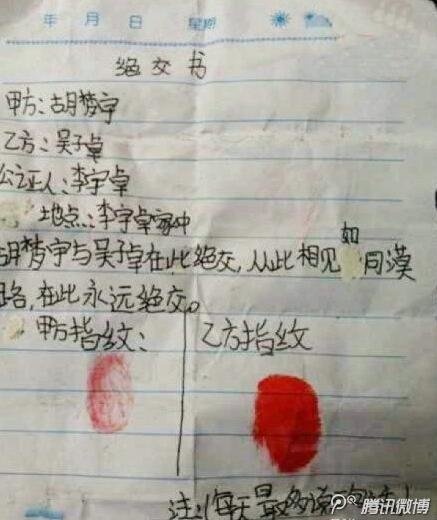 年 月 日 星期
绝交书
甲方：胡梦宇
乙方：吴子卓
公证人：李宇卓
地点：李宇卓家中
胡梦宇与吴子卓在此绝交，从此相见如同漠
路，在此永远绝交。
甲方指纹：
乙方指纹
注：(每天最多
腾讯微博